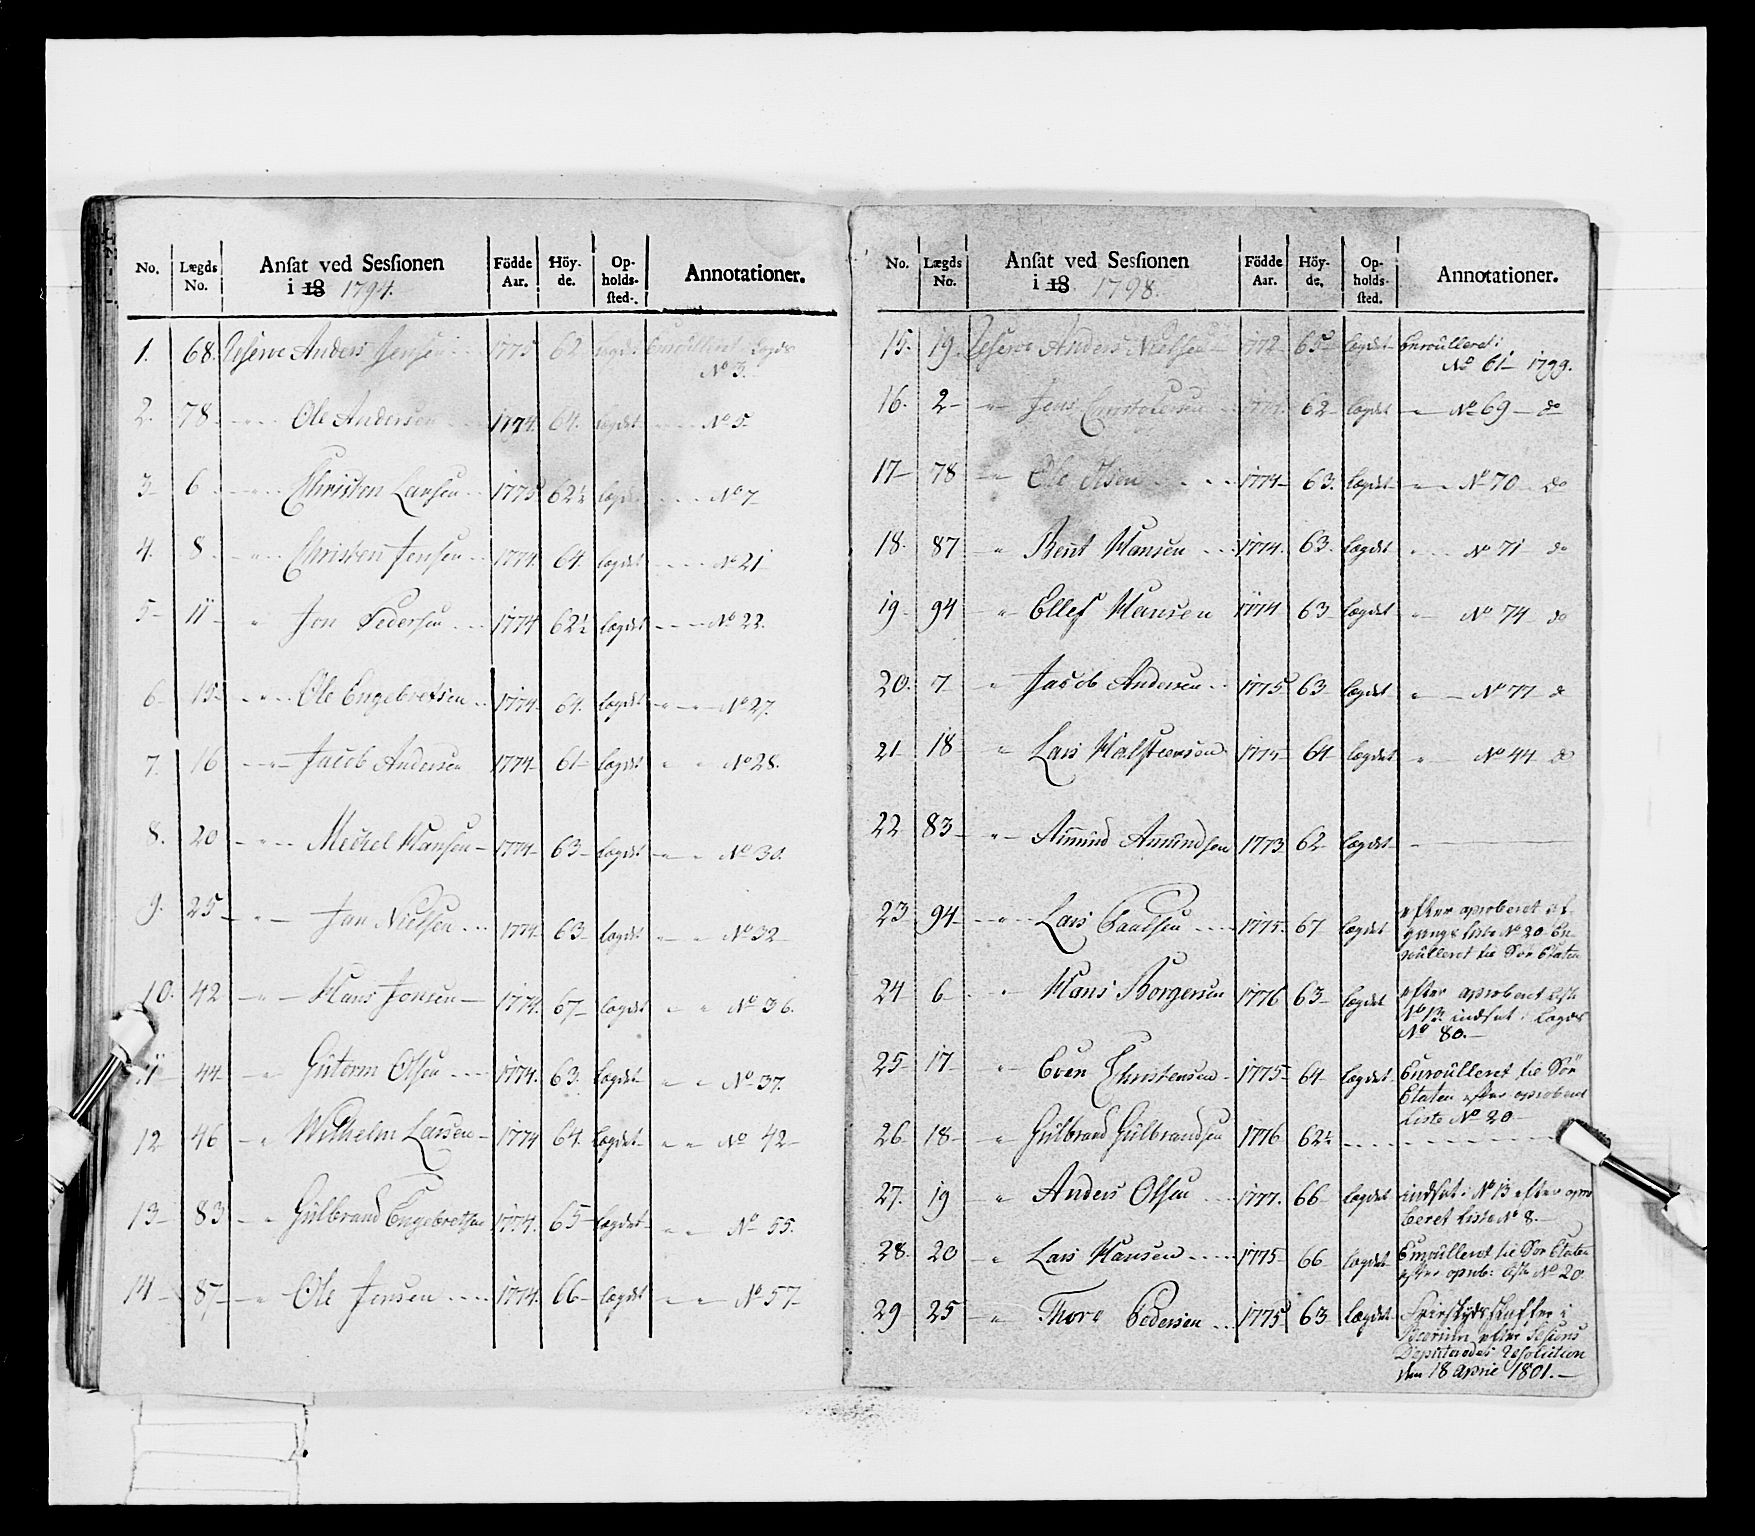 No. Lægds No. Ansat ved Sessionen i 18 1794. Födde Aar. Höyde. Opholdssted. Annotationer.
1. 68. Reserve Anders Jensen 1775 62 Lægdet Enroulleret Lægds
No 3.
2. 78 - " - Ole Andersen 1774. 64. Lægdet - No 5
3 6 - " - Christen Larsen 1775 62½ Lægdet - No 7
4. 8 - " - Christen Jensen 1774. 64 Lægdet - No 21
5 11 " Jon Pedersen 1774 62½ Lægdet - No 22.
6 15 - " - Ole Engebretsen 1774 64. Lægdet - " - No 27.
7. 16 - " - Jacob Andersen 1774 61 Lægdet " " No 28.
8. 20 - " - Meckel Hansen 1774 63 Lægdet - " No 30.
9. 25 - " - Jan Nielsen 1774. 63 Lægdet - " No 32
10. 42 - " - Hans Jonsen 1774. 67 Lægdet " " No 36.
11 44 - " Gutorm Olsen 1774. 63. Lægdet " " No 37.
12 46 - " Wilhelm Larsen 1774 64. Lægdet " " No 42
13 83 - " Gulbrand Engebretsen 1774. 65 Lægdet " " No 55.
14 87 - " Ole Jensen 1774. 66 Lægdet " " No 57
No. Lægds No. Ansat ved Sessionen i 18 1798. Födde Aar. Höyde. Opholdssted. Annotationer.
15. 19. Reserve Anders Nielsen 1772 65 Lægdet Enroulleret:
No 61 1799.
16. 2 " Jens Christophersen 62 Lægdet " No 69 do
17 78 " Ole Olsen 1774 63. Lægdet " " No 70 do
18. 87 " Bent Hansen 1774. 63. Lægdet " No 71 do
19 94 " Ellef Hansen 1774 63 Lægdet " No 74 do
20. 7 " Jacob Andersen 1775 63 Lægdet " No 77 do
21 18 " Lars Halsteensen 1775 64 Lægdet " No 44 do
22 83 " Amund Amundsen 1773 62 Lægdet -
23 94 - " - Lars Paulsen 1775. 67 Lægdet efter aproberet af-
gangs Liste No 20 En-
roulleret til Söe Etaten
24 6 " Hans Borgersen 1776 63 Lægdet efter aproberet Liste
No 13. indsat i Lægds
No 80.
25 17 " Even Christensen 1775 64 Lægdet Enroulleret til Söe
Etaten efter aproberet
Liste No 20
26 18 " Gulbrand Gulbrandsen 1776 62½
27. 19 " Anders Olsen 1777. 66 Lægdet indsat i No 13 efter apro
beret Liste No 8.
28. 20 " Lars Hansen 1775 66 Lægdet Enroulleret til Söe Etaten
efter aprob: Liste No 20
29 25 " Thore Pedersen 1775 63 Lægdet i
Bærum efter Sessions
Deputeredes Resolution
den 18 April 1801.